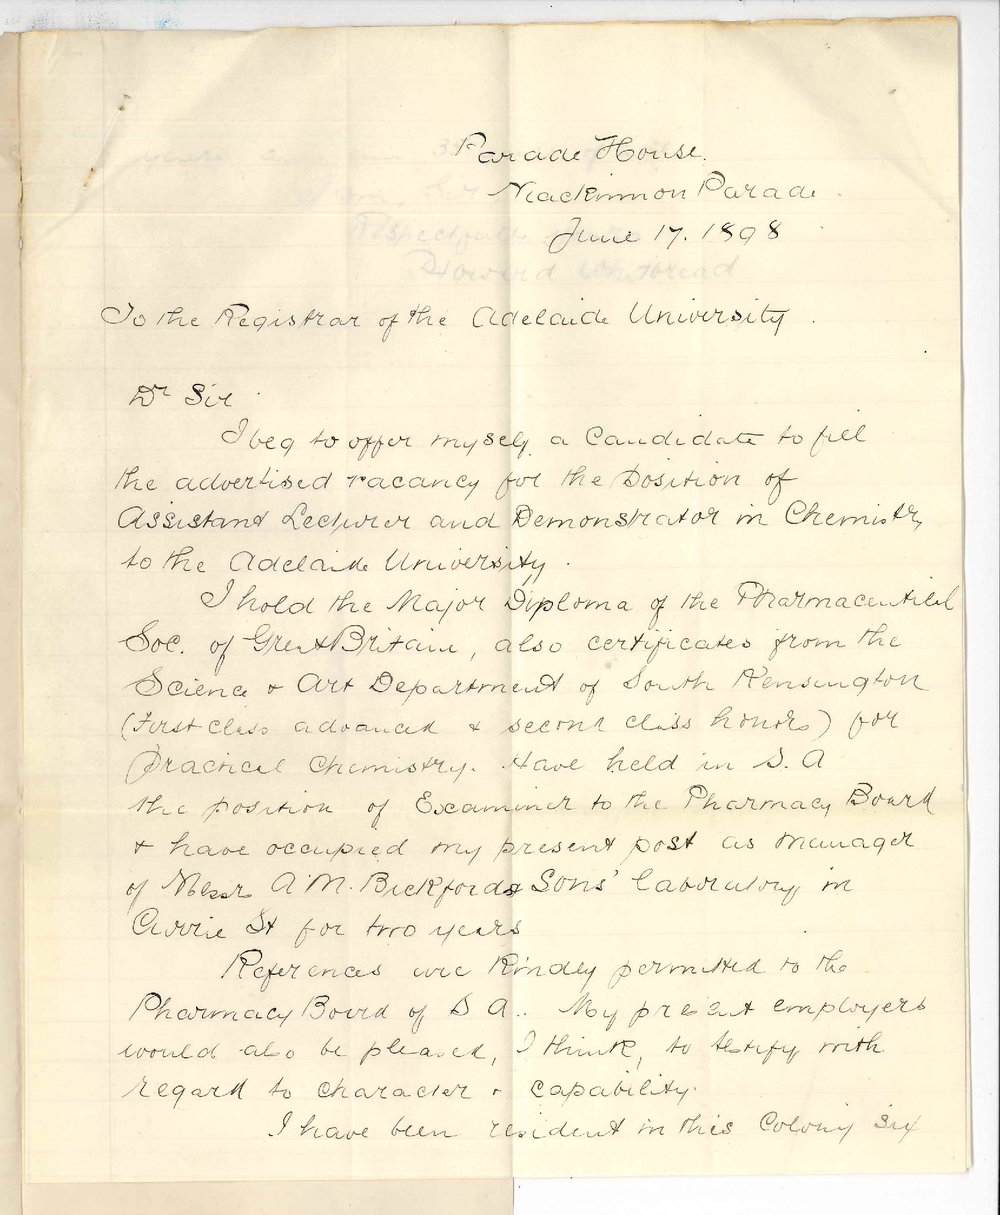 Parade House.
Mackinnon Parade.
June 17. 1898
To the Registrar of the Adelaide University.
Dr Sir.
I beg to offer myself a candidate to fill
the advertised vacancy for the position of
Assistant Lecturer and Demonstrator in Chemistry
to the Adelaide University.
I hold the Major Diploma of the Pharmaceutical
Soc. of Great Britain, also certificates from the
Science & Art Department of South Kensington
(First class advanced & second class honors) for
practical chemistry. Have held in S. A
the position of Examiner to the Pharmacy Board
& have occupied my present post as manager
of Messr A. M. Bickford & Sons' laboratory in
Currie St for two years
References are kindly permitted to the
Pharmacy Board of S A.. My present employers
would also be pleased, I think, to testify with
regard to character & capability.
I have been resident in this Colony six